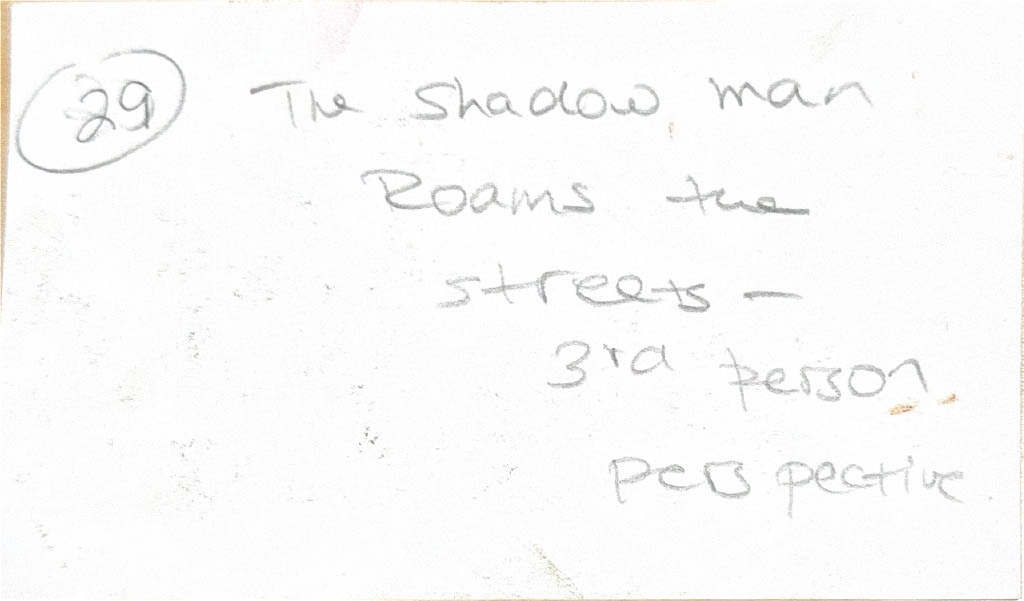 29 The Shadow man
Roams the
streets —
3rd person
perspective